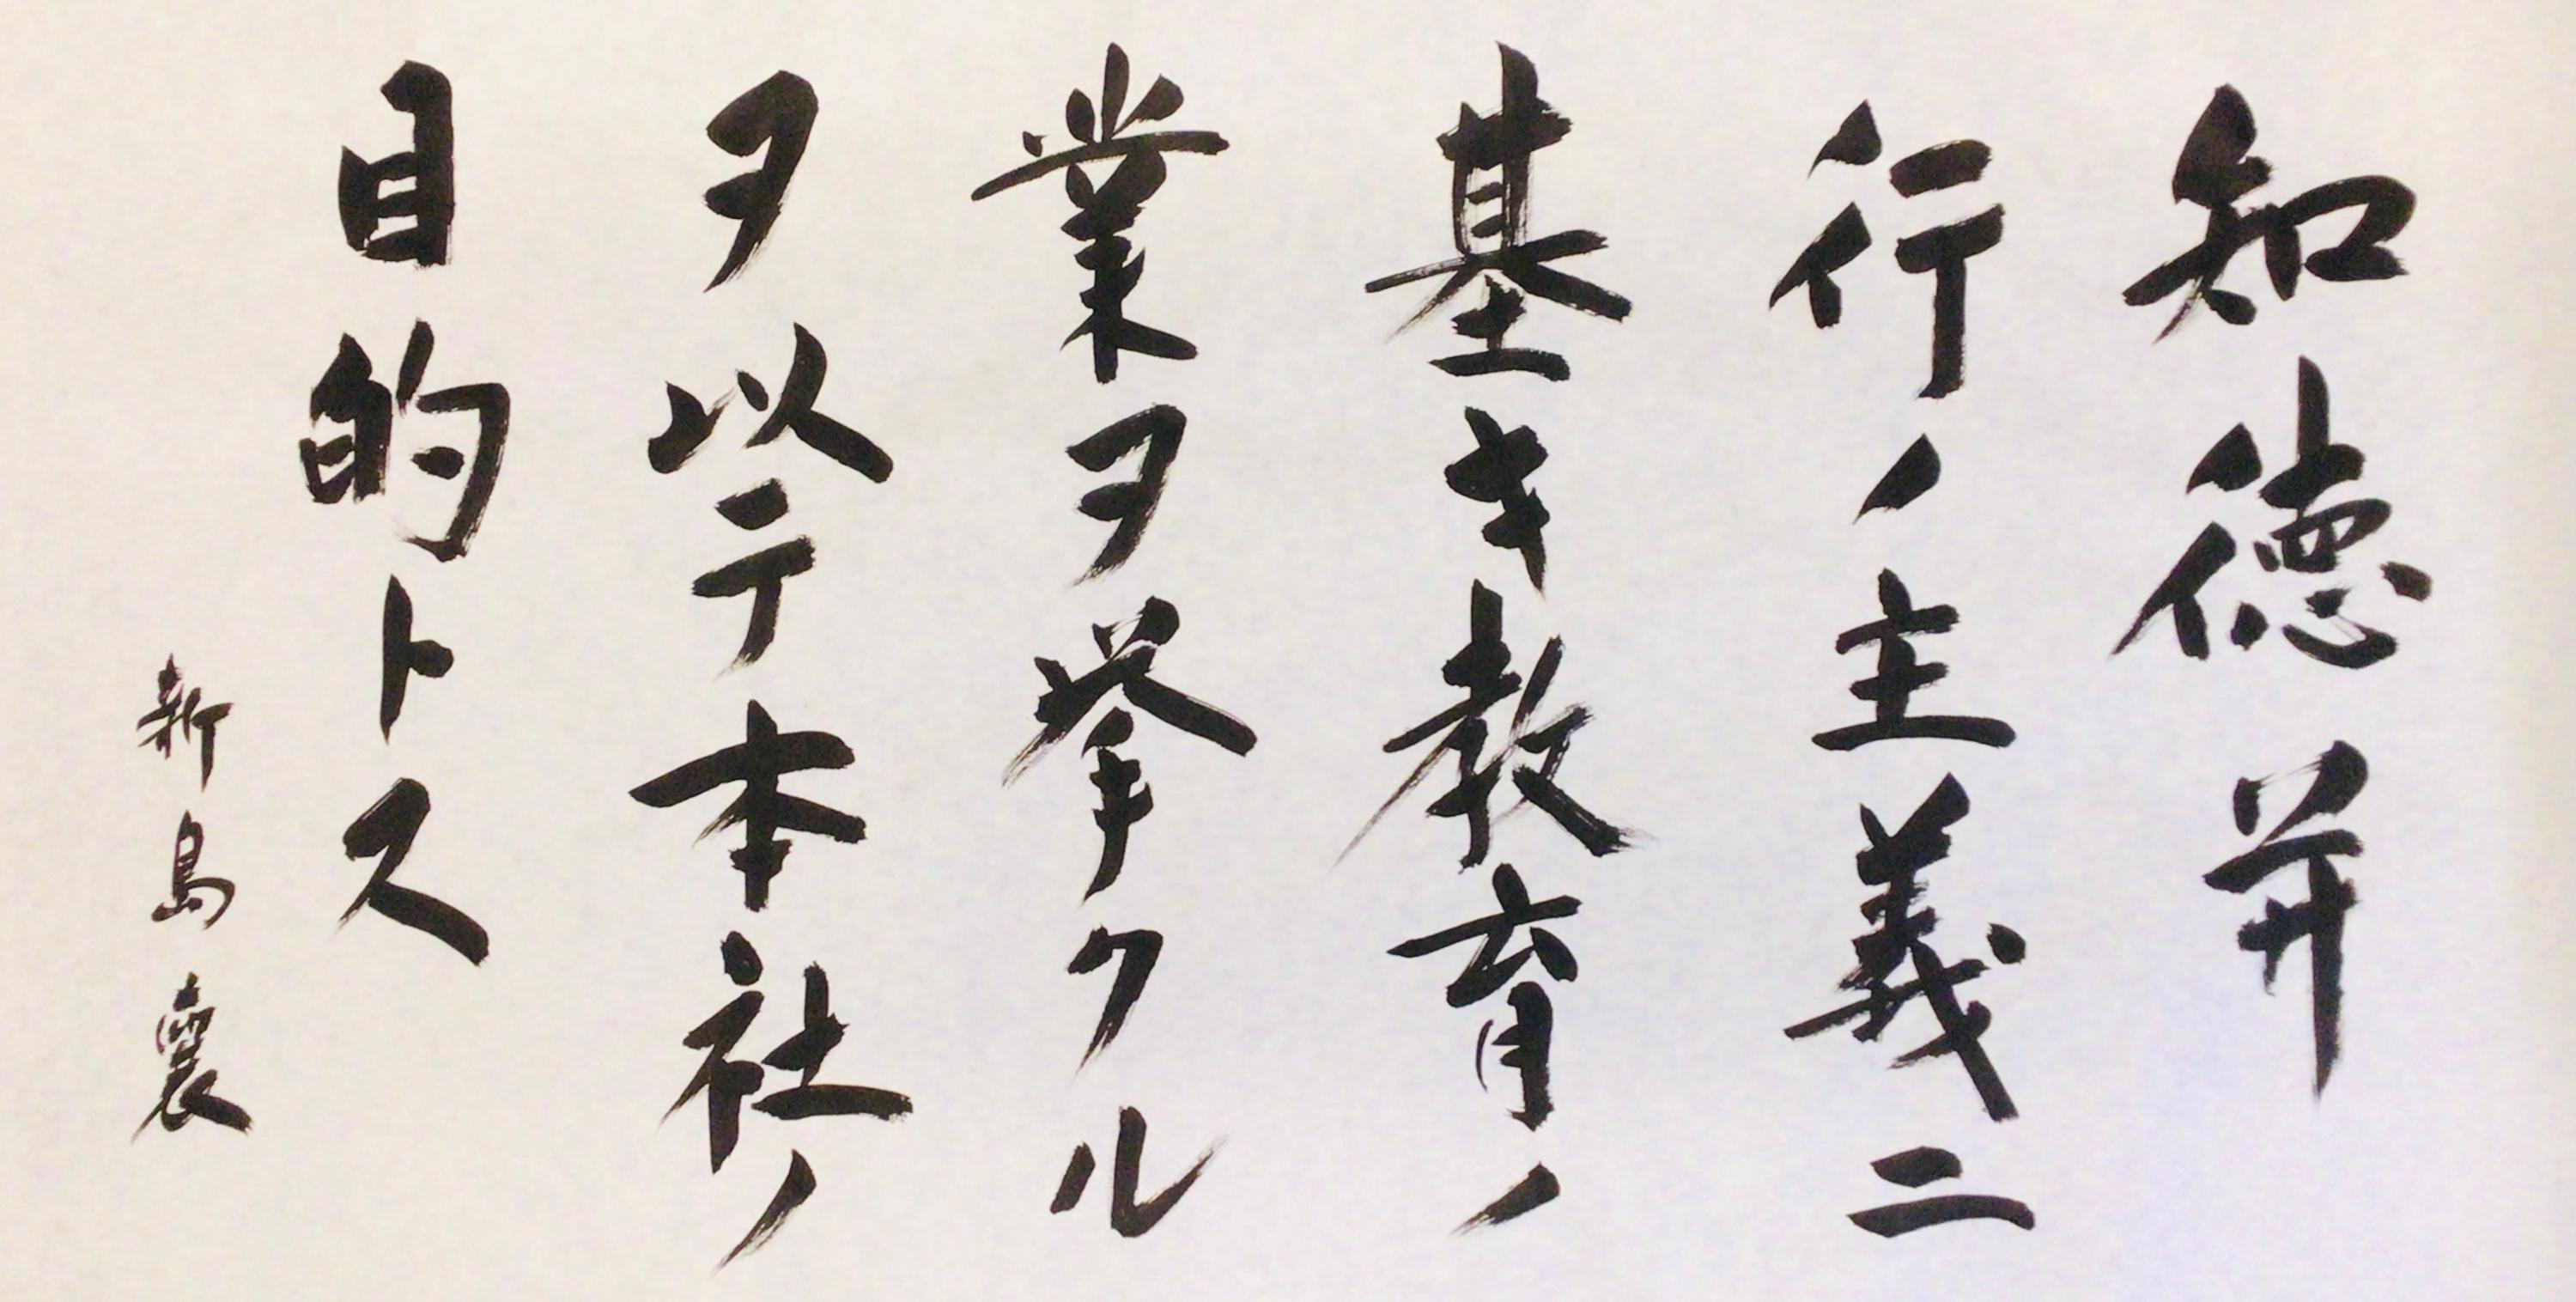 知徳并
行ノ主義ニ
基キ教育ノ
業ヲ挙クル
ヲ以テ本社ノ
目的トス
新島襄